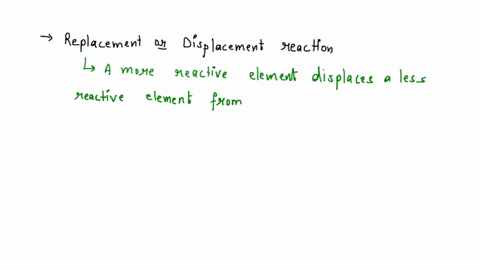 → Replacement or Displacement reaction
↳ A more reactive element displaces a less
reactive element from